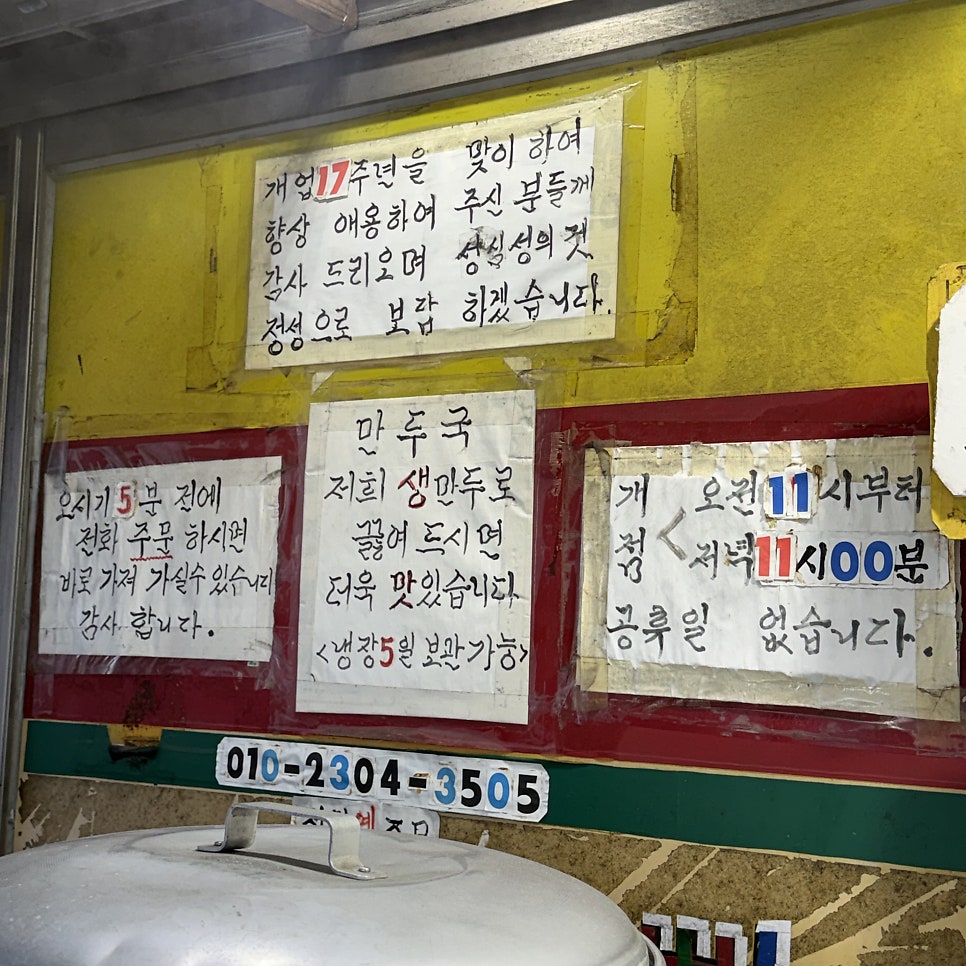 개업17주년을 맞이 하여
항상 애용하여 주신 분들께
감사 드리오며 성심성의 것
정성으로 보답 하겠습니다.
오시기 5분 전에
전화 주문 하시면
바로 가져 가실수 있습니다
감사 합니다.
만두국
저희 생만두로
끓여 드시면
더욱 맛있습니다
<냉장5일 보관 가능>
개점 < 오전 11시부터
저녁 11시00분
공휴일 없습니다.
010-2304-3505